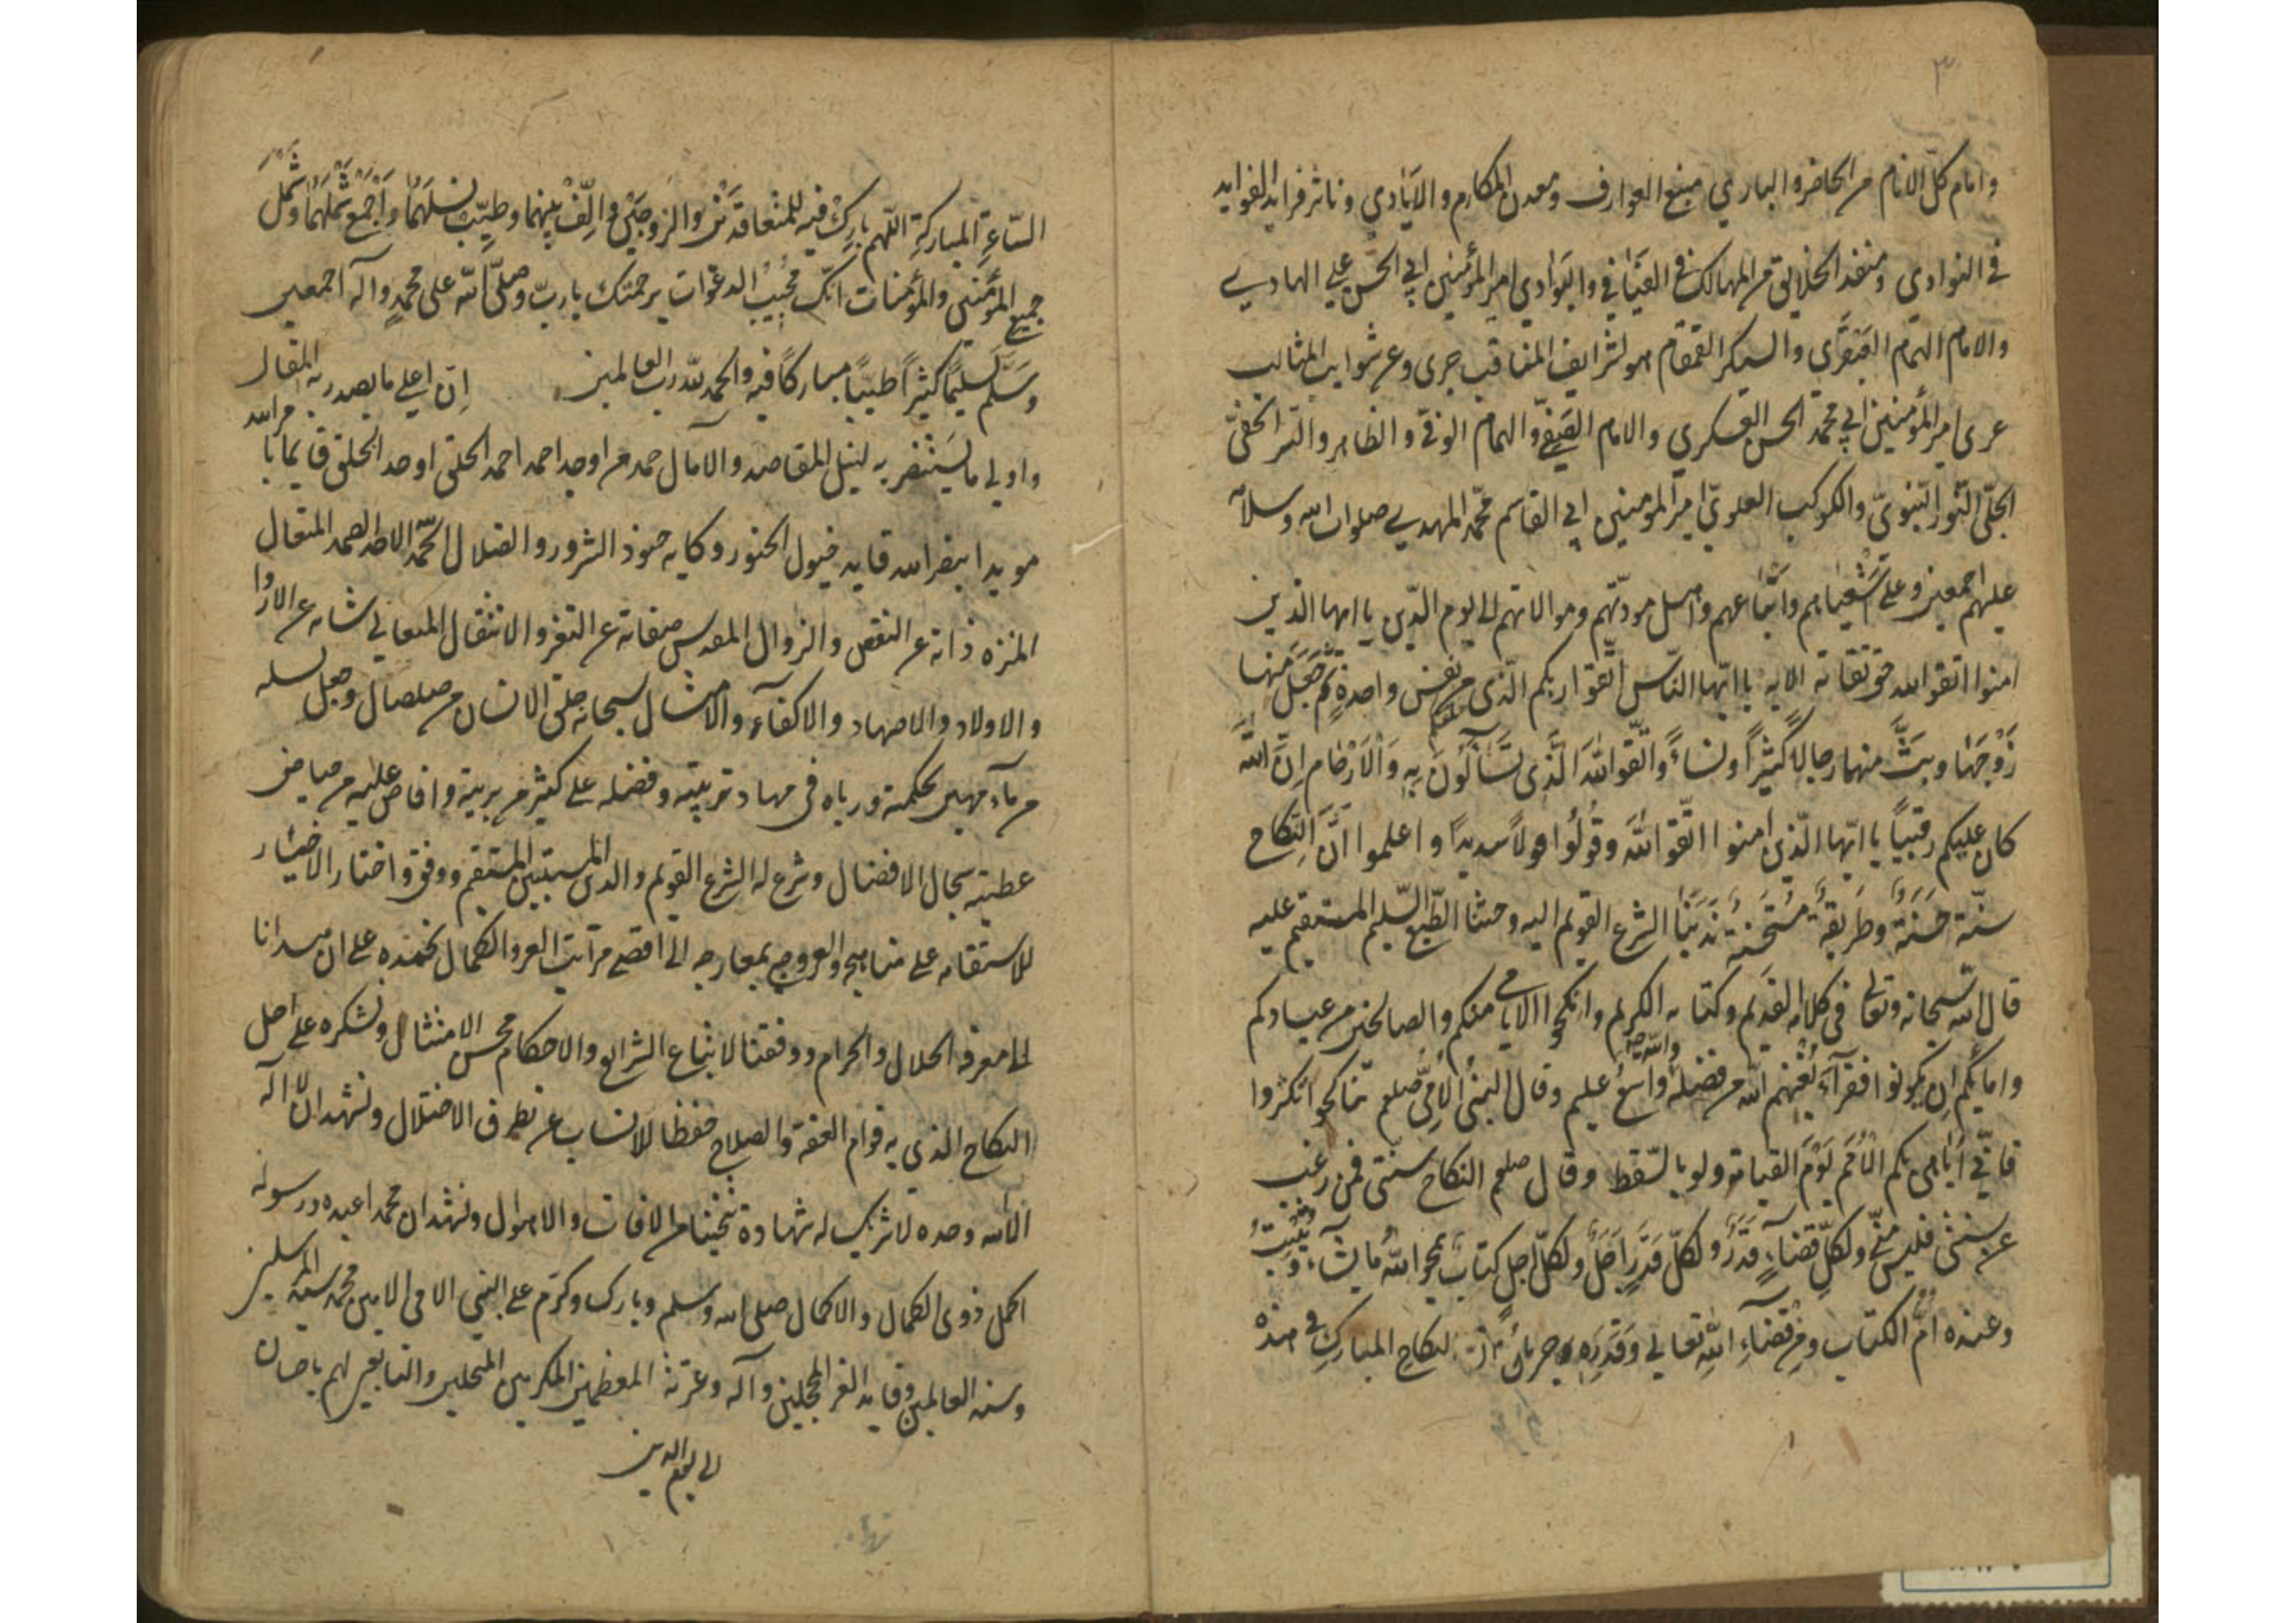 ٣
وامام كلّ الانام من الحاضر والبادي منبع العوارف ومعدن المكارم والايادي وناثر فرايد الفوايد
في النوادي ومنقذ الخلايق من المهالك في الفيافي والبوادي امير المؤمنين ابي الحسن علي الهادي
والامام الهمام العبقري والسيد القمقام هو لشرايف المناقب حرى وعن شوايب المثالب
عرى امير المؤمنين ابي محمد الحسن العسكري والامام الصفيّ والهمام الوفيّ والظاهر والسّر الخفيّ
الجلّى النّور النّبويّ والكوكب العلويّ امير المؤمنين ابي القاسم محمّد المهدي صلوات الله وسلامه
عليهم اجمعين وعلى اشياعهم واتباعهم واهل مودّتهم وموالاتهم الى يوم الدّين يا ايها الذين
امنوا اتقوا الله حق تقاته الايه يا ايّها النّاس اتّقوا ربكم الّذى خلقكم من نفس واحدةٍ ثم جَعَلَ منها
زَوْجَهَا وبَثَّ منهما رجالًا كثيرًا ونساءً واتّقوا اللهَ الَّذِى تسَآءلُونَ بِهِ وَالْاَرْحَام اِنَّ اللهَ
كان عليكم رقيبًا يا ايّها الّذين امنوا اتّقوا اللهَ وقُولُوا قولاً سديدًا واعلموا انَّ النّكاح
سنّة حَسَنَةٌ وطريقةٌ مستحسنة نَدَبَنَا الشرع القويم اليه وحثنا الطّبع السّليم المستقيم عليه
قال الله سبحانه وتعالى في كلامه القديم وكتابه الكريم وانكحوا الايامى منكم والصالحين من عبادكم
وامائكم اِن يكونوا فقرآءَ يُغنهم الله من فضله والله واسعٌ عليم وقال النبىّ الاُمّى صلعم تناكحوا تكثروا
فانّي اُباهى بكم الاُمَم يَوْمَ القيامة ولو بالسّقط وقال صلعم النكاح سنّتى فمن رغب
عن سنتى فليس منّي ولكلّ قضاءٍ قَدَرٌ ولكلّ قَدَرٍ اَجَلٌ ولكلّ اجلٍ كتاب يمحو الله ما يشاء ويُثبِتُ
وعنده اُمُّ الكتاب ومن قضآءِ اللهِ تعالى وقَدَرِه جريان النكاح المبارك في هذه
السّاعةِ المباركةِ اللّهم بارِكْ فيه للمتعاقدَيْن والزوجَيْن واَلِّفْ بينهما وطيّب نسلَهُمَا واَجْمَعْ شَمْلَهُمَا وشَمْلَ
جميع المؤمنين والمؤمنات انّك مُجيبُ الدعَوات برحمتك يا ربّ وصلّى الله على محمدٍ وآله اجمعين
وسَلَّم تسليمًا كثيرًا طيّبًا مباركًا فيه والحمد لله رب العالمين اِنّ اعلى ما يصدر به المقال
واولى ما يستنصر به لنيل المقاصد والآمال حمد من اوجد احمد احمد الخلق اوحد الخلق قايما بامر الله
مويدا بنصر الله قايد خيول الخيور وكابه جنود الشرور والضلال اللّهمّ الاحد الصمد المتعال
المنزه ذاته عن النقص والزوال المقدس صفاته عن التغير والانتقال المتعالي شانه عن الازواج
والاولاد والاصهاد والاكفآء والامثال سبحانه خلق الانسان من صلصال وجعل نسله
من مآء مهين بحكمته ورباه فى مهاد تربيته وفضله على كثير من بريته وافاض عليه من حياض
عطيته سجال الافضال وشرع له الشرع القويم والدين المتين المستقيم ووفق واختار الاخيار
للاستقامه على مناهجه والعروج بمعارجه الى اقصى مراتب العز والكمال نحمده على ان هدانا
الى معرفة الحلال والحرام ووفقنا لاتباع الشرايع والاحكام بحسن الامتثال ونشكره على احل
النكاح الذي به قوام العفة والصلاح حفظا للانساب عن تطرق الاختلال ونشهد ان لا اله
الا الله وحده لا شريك له شهادة تنجينا من الافات والاهوال ونشهد ان محمدا عبده ورسوله
اكمل ذوى الكمال والاكمال صلى الله وسلم وبارك وكرم على النبي الامى الامين محمد سيد المرسلين
وسند العالمين وقايد الغر المحجلين وآله وعترته المعظمين المكرمين المبجلين والتابعين لهم باحسان
الى يوم الدين